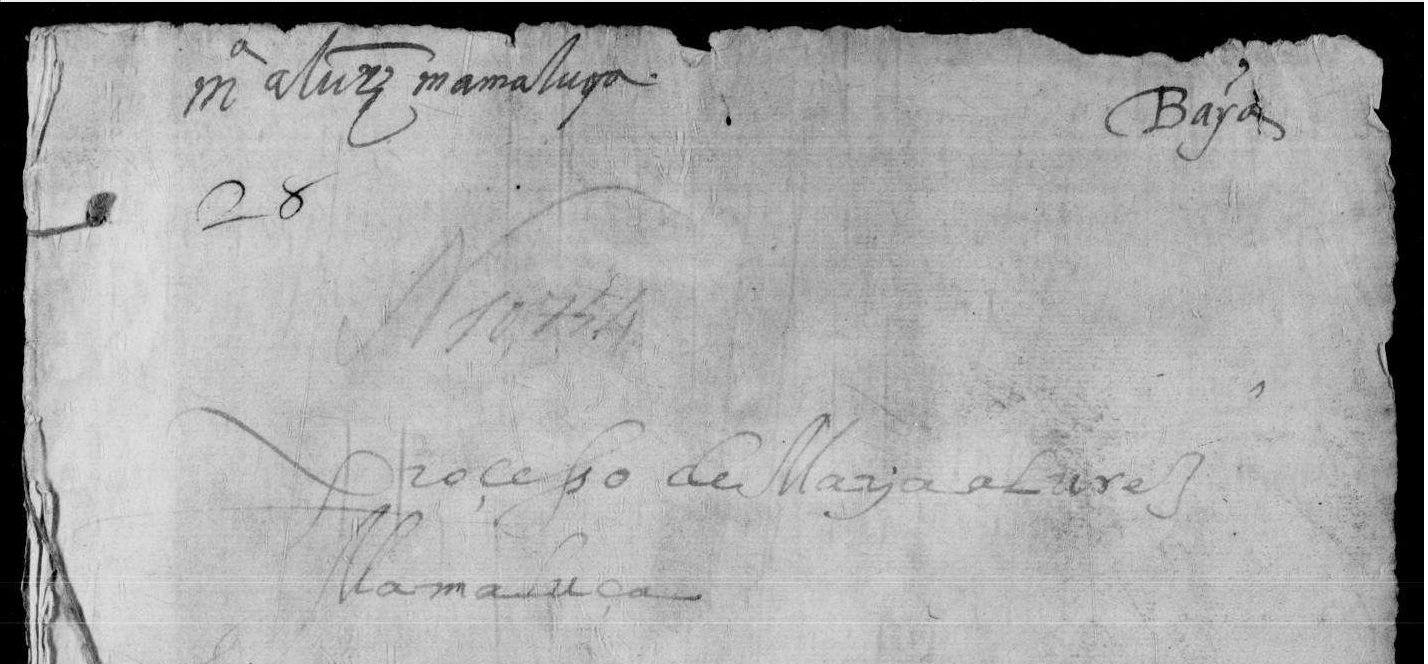 Mª alurz mamaluqa. Baya
28
N 10,754
Proçesso de Marja alurez
Mamaluca